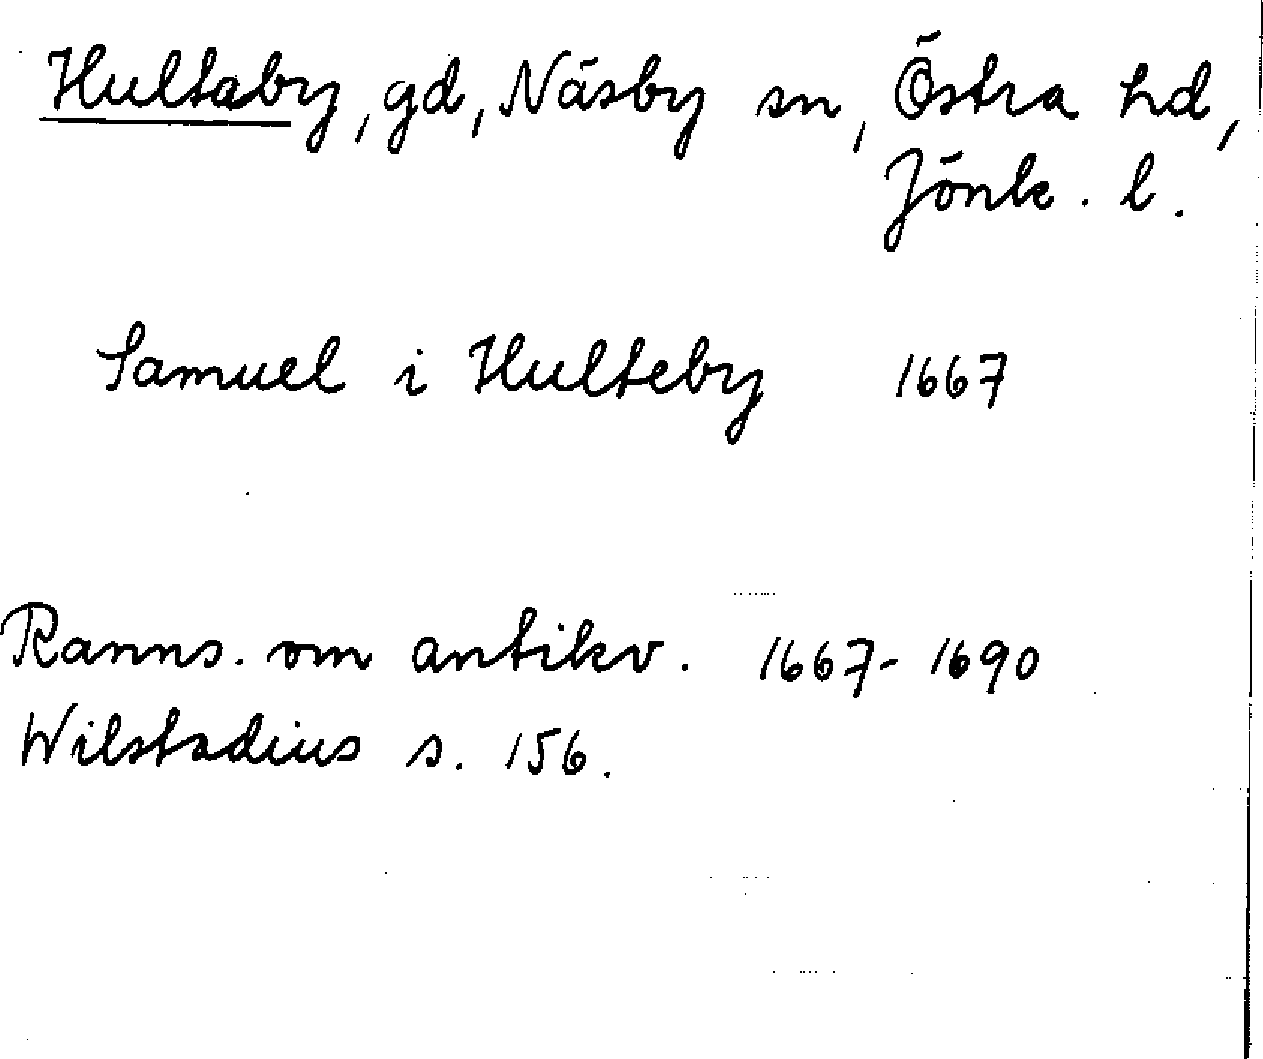 Hultaby, gd, Näsby sn, Östra hd,
Jönk. l.
Samuel i Hulteby 1667
Ranns. om antikv. 1667-1690
Wilstadius s. 156.